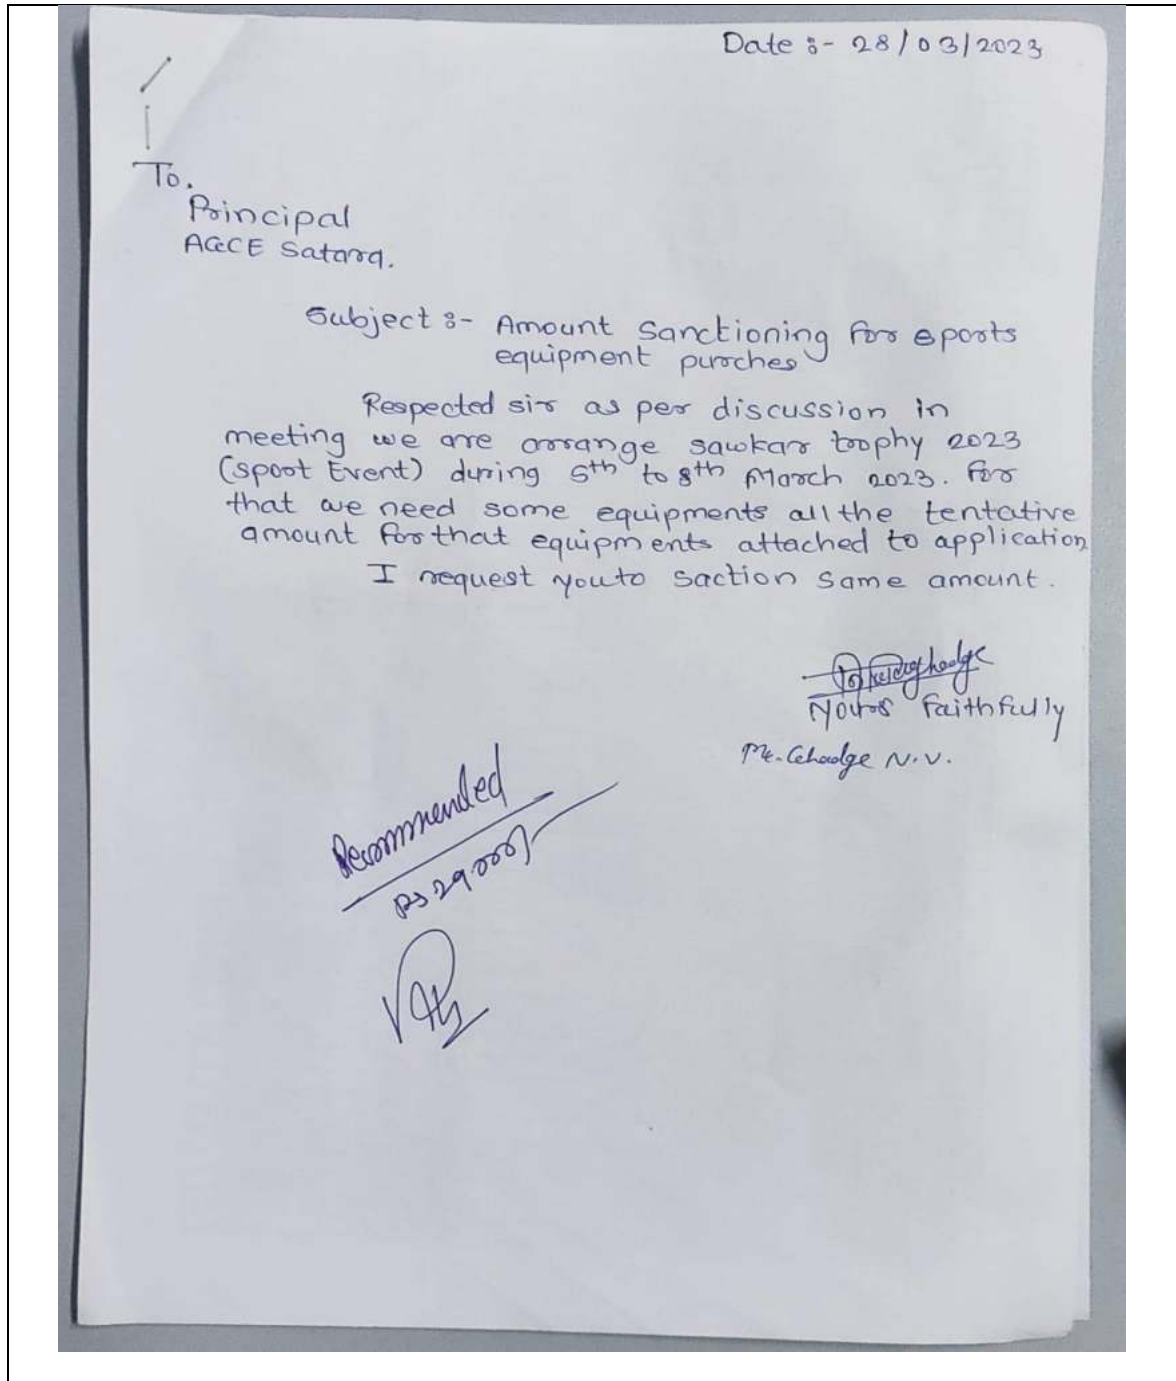 Date :- 28/03/2023
To,
Principal
AGCE Satara.
Subject :- Amount Sanctioning for sports
equipment purches
Respected sir as per discussion in
meeting we are arrange sawkar trophy 2023
(spoot Event) during 5th to 8th March 2023. for
that we need some equipments all the tentative
amount for that equipments attached to application
I request you to saction same amount.
Yours Faithfully
Mr. Ghadge N.V.
Recommended
Rs 29000/-